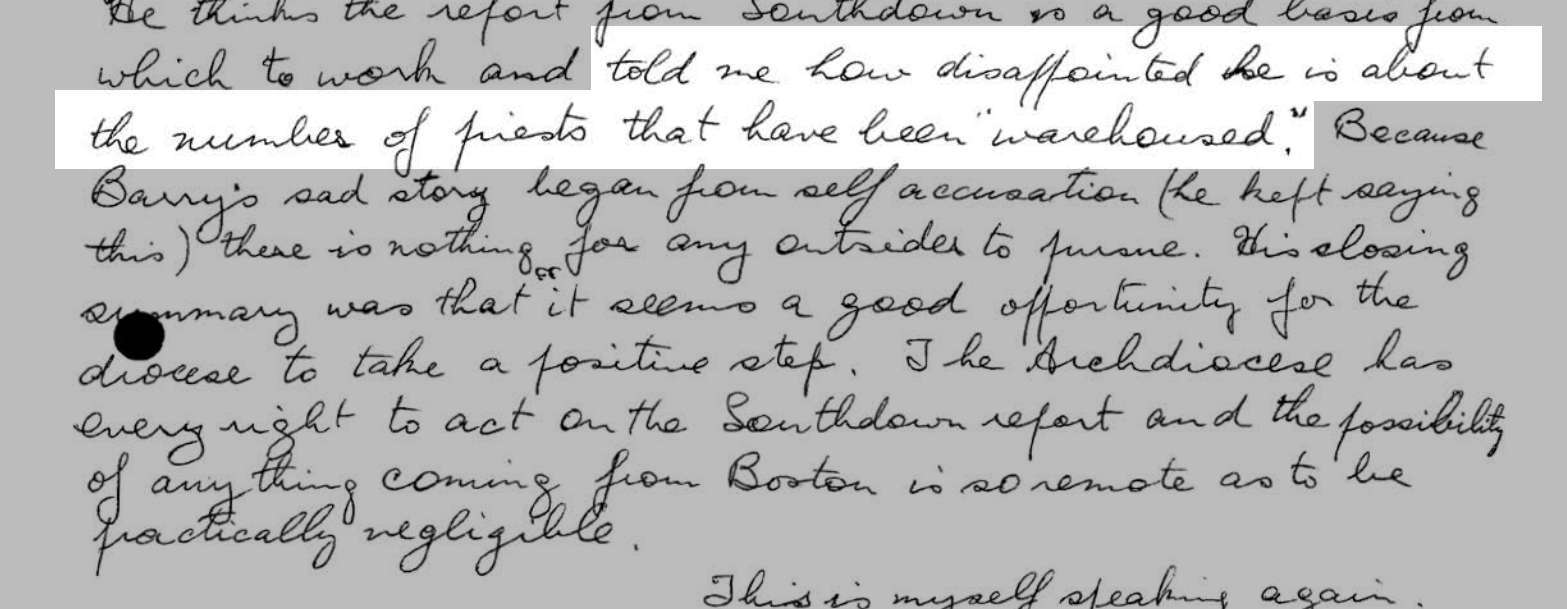 He thinks the report from Southdown is a good basis from
which to work and told me how disappointed he is about
the number of priests that have been "warehoused." Because
Barry's sad story began from self accusation (he kept saying
this) there is nothing for any outsider to pursue. His closing
summary was that "it seems a good opportunity for the
diocese to take a positive step. The Archdiocese has
every right to act on the Southdown report and the possibility
of anything coming from Boston is so remote as to be
practically negligible.
This is myself speaking again.